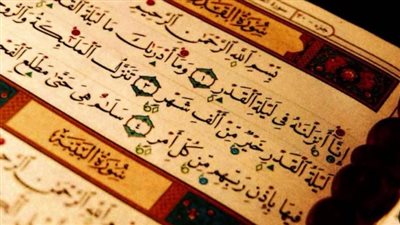 سُورَةُ الْقَدْرِ
بِسْمِ اللَّهِ الرَّحْمَٰنِ الرَّحِيمِ
إِنَّا أَنزَلْنَاهُ فِي لَيْلَةِ الْقَدْرِ ١ وَمَا أَدْرَاكَ مَا لَيْلَةُ
لَيْلَةُ الْقَدْرِ خَيْرٌ مِّنْ أَلْفِ شَهْرٍ ٣ تَنَزَّلُ الْمَلَائِكَةُ
فِيهَا بِإِذْنِ رَبِّهِم مِّن كُلِّ أَمْرٍ ٤ سَلَامٌ هِيَ حَتَّىٰ مَطْلَعِ
سُورَةُ الْبَيِّنَةِ
اللَّهِ الرَّحْمَٰنِ